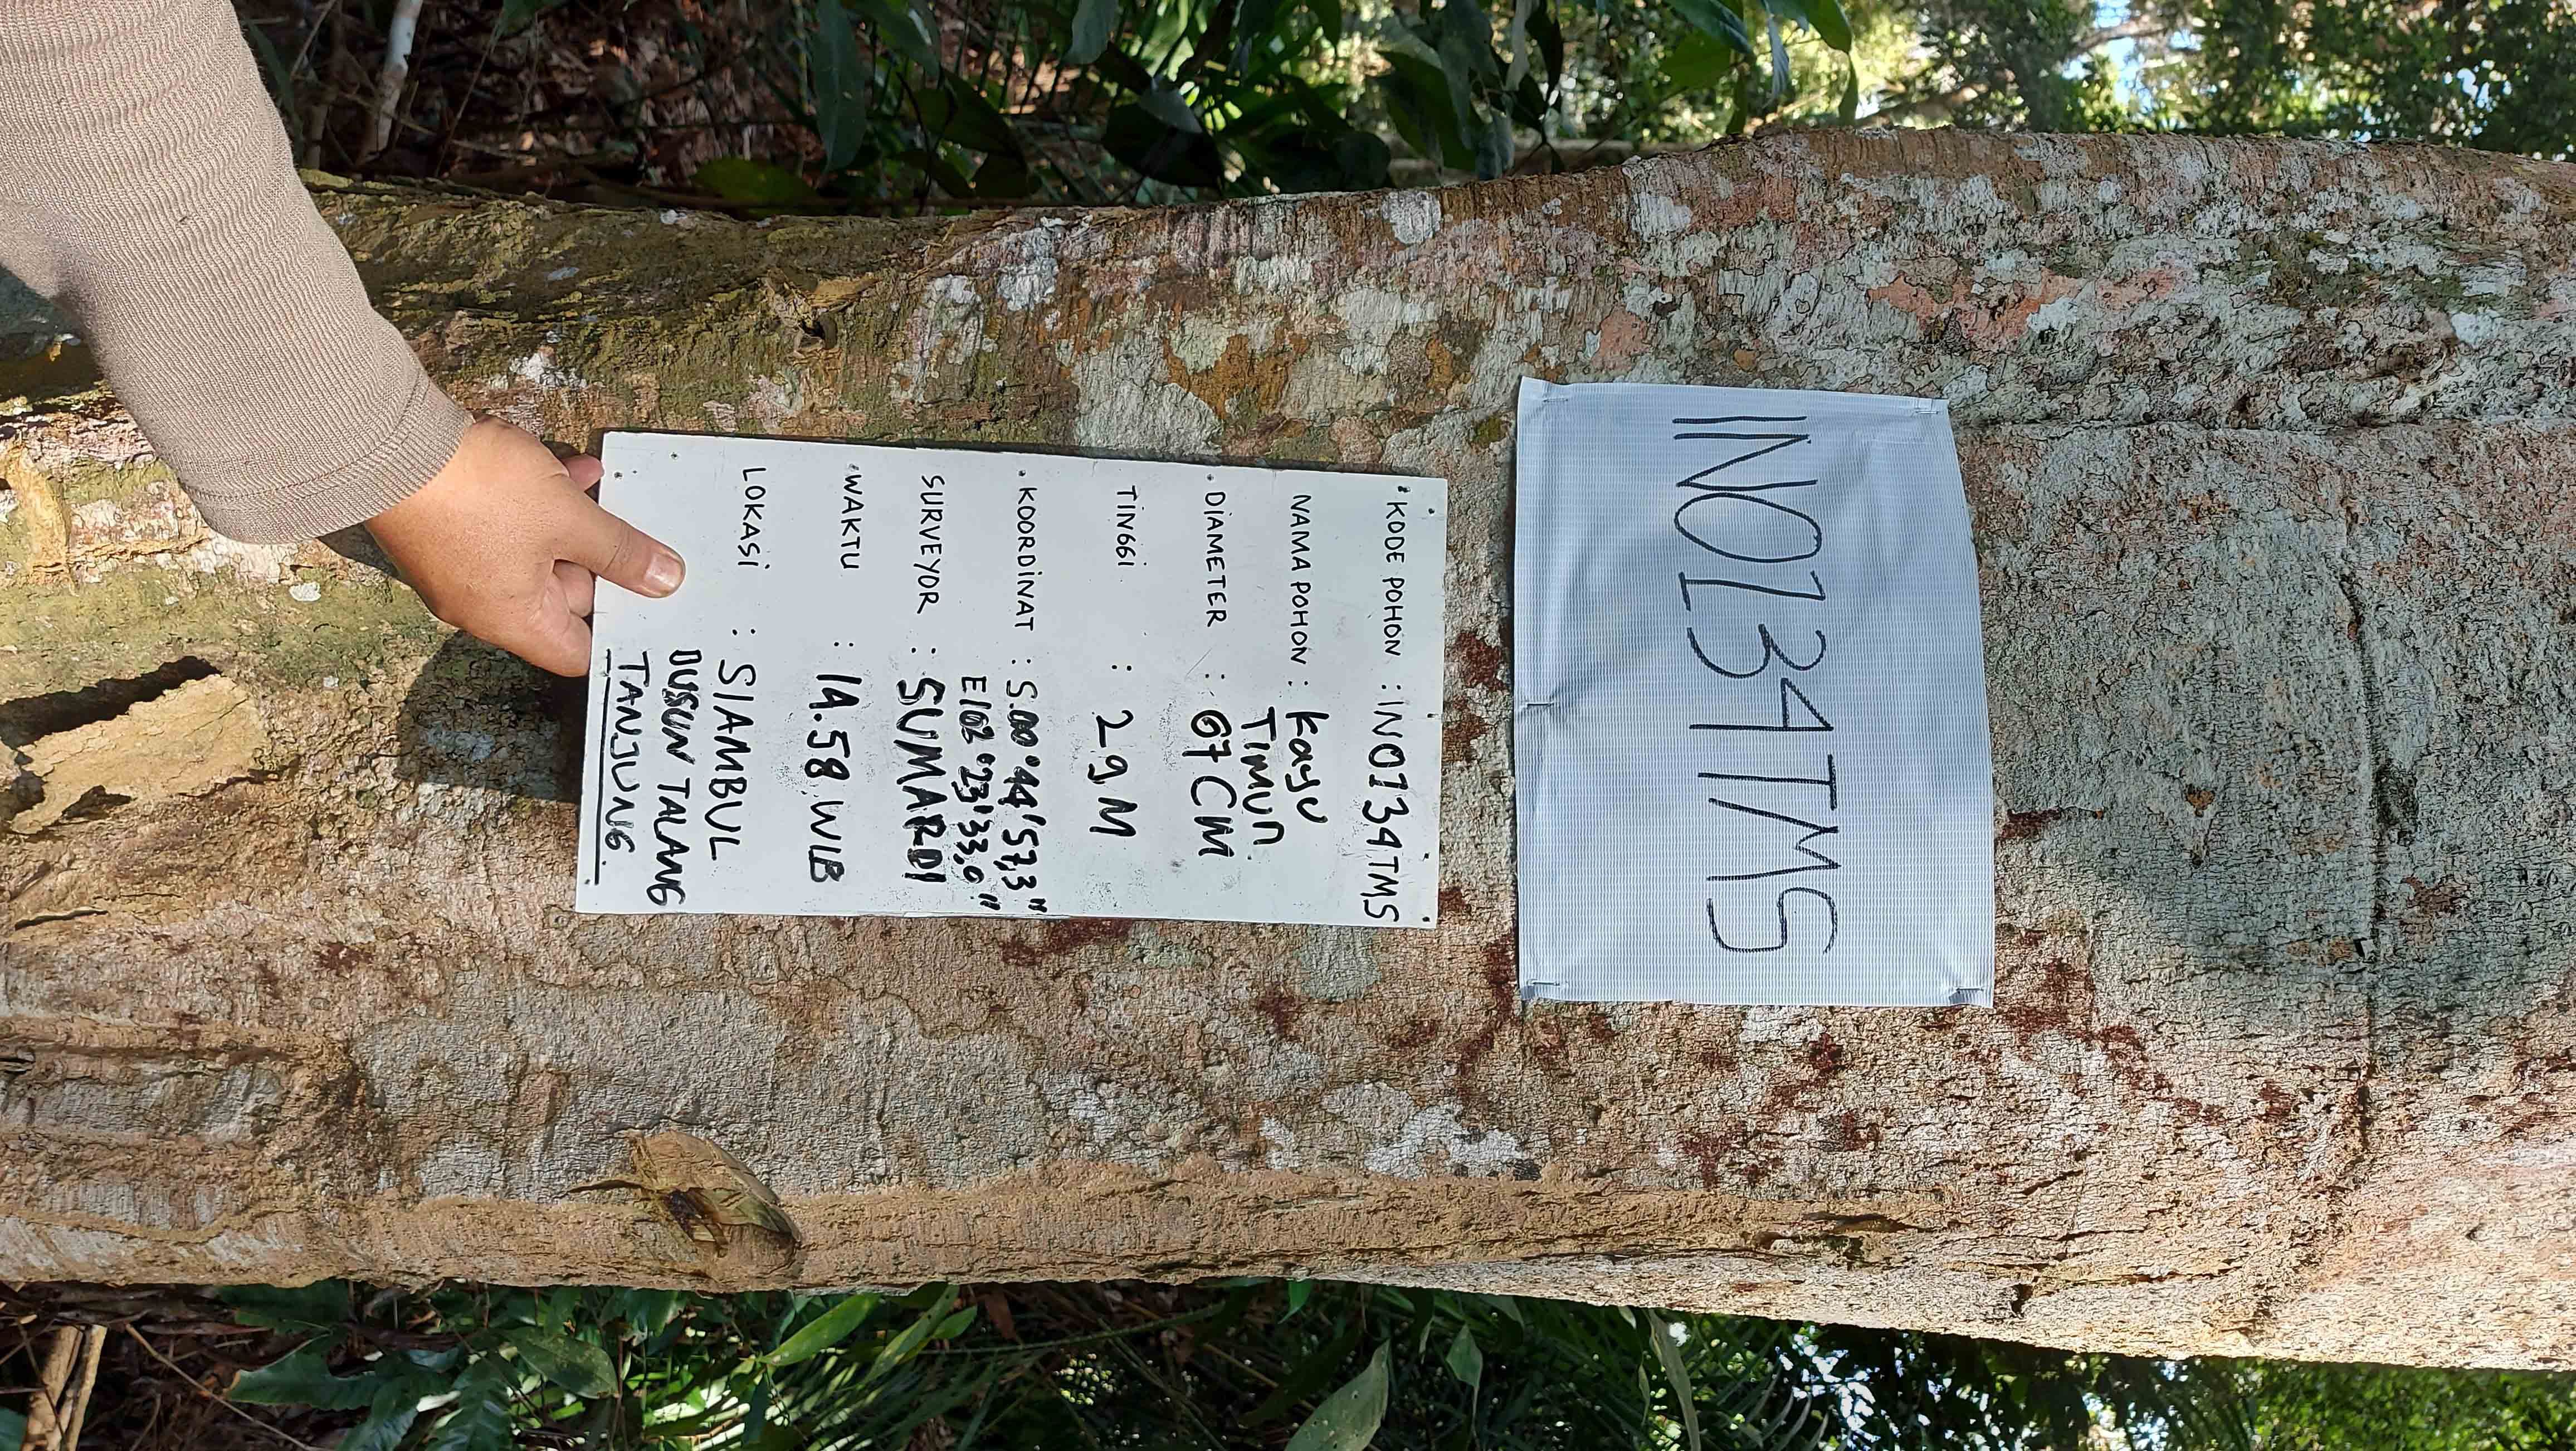 INO134TMS
KODE POHON : INO134TMS
NAMA POHON : Kayu
TIMUN.
DIAMETER : 67 CM
TINGGI : 29 M
KOORDINAT : S.00°44'57,3"
E102°23'33,0"
SURVEYOR : SUMARDI
WAKTU : 14.58 WIB
LOKASI : SIAMBUL
DUSUN TALANG
TANJUNG.